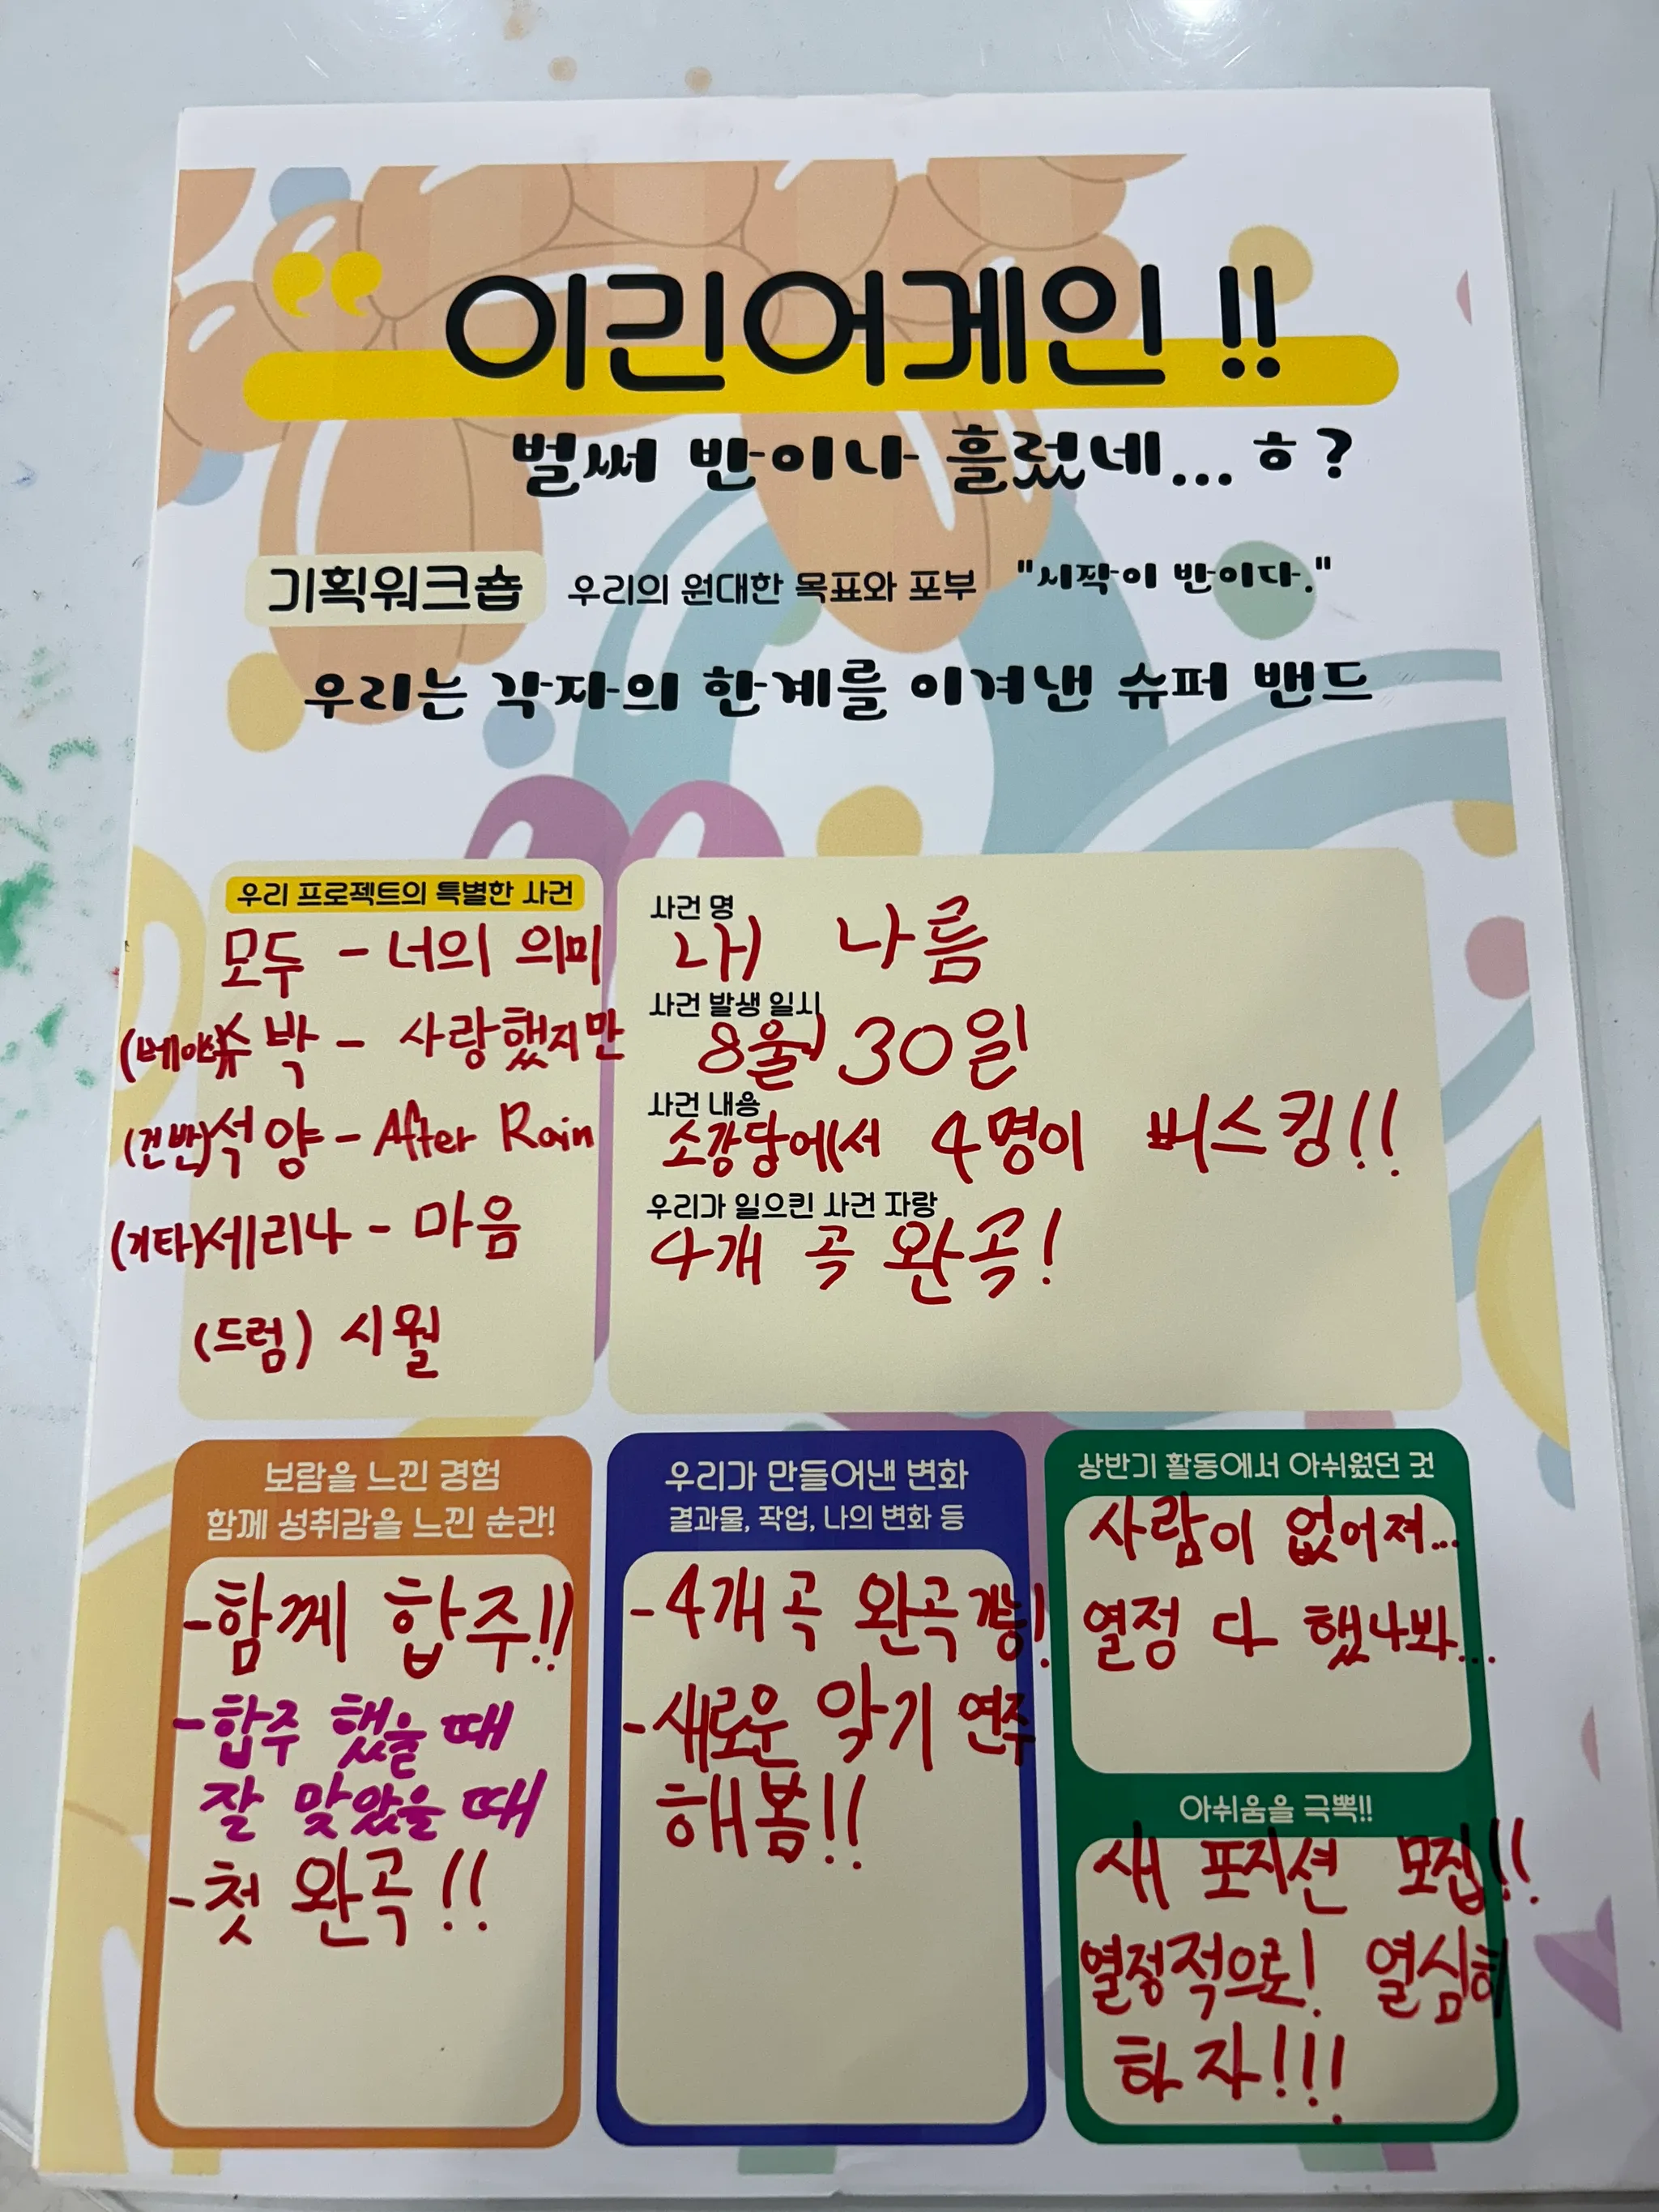 이린어게인 !!
벌써 반이나 흘렀네... ㅎ?
기획워크숍 우리의 원대한 목표와 포부 "시작이 반이다."
우리는 각자의 한계를 이겨낸 슈퍼 밴드
우리 프로젝트의 특별한 사건
모두 - 너의 의미
(베이스)슈박 - 사랑했지만
(건반)석양 - After Rain
(기타)세리나 - 마음
(드럼) 시월
사건 명
내 나름
사건 발생 일시
8월 30일
사건 내용
소강당에서 4명이 버스킹!!
우리가 일으킨 사건 자랑
4개 곡 완곡!
보람을 느낀 경험
함께 성취감을 느낀 순간!
-함께 합주!!
-합주 했을 때
잘 맞았을 때
-첫 완곡!!
우리가 만들어낸 변화
결과물, 작업, 나의 변화 등
-4개곡 완곡 가능!
-새로운 악기 연주
해봄!!
상반기 활동에서 아쉬웠던 것
사람이 없어져...
열정 다 했나봐...
아쉬움을 극뽁!!
새 포지션 모집!!
열정적으로! 열심히
하자!!!